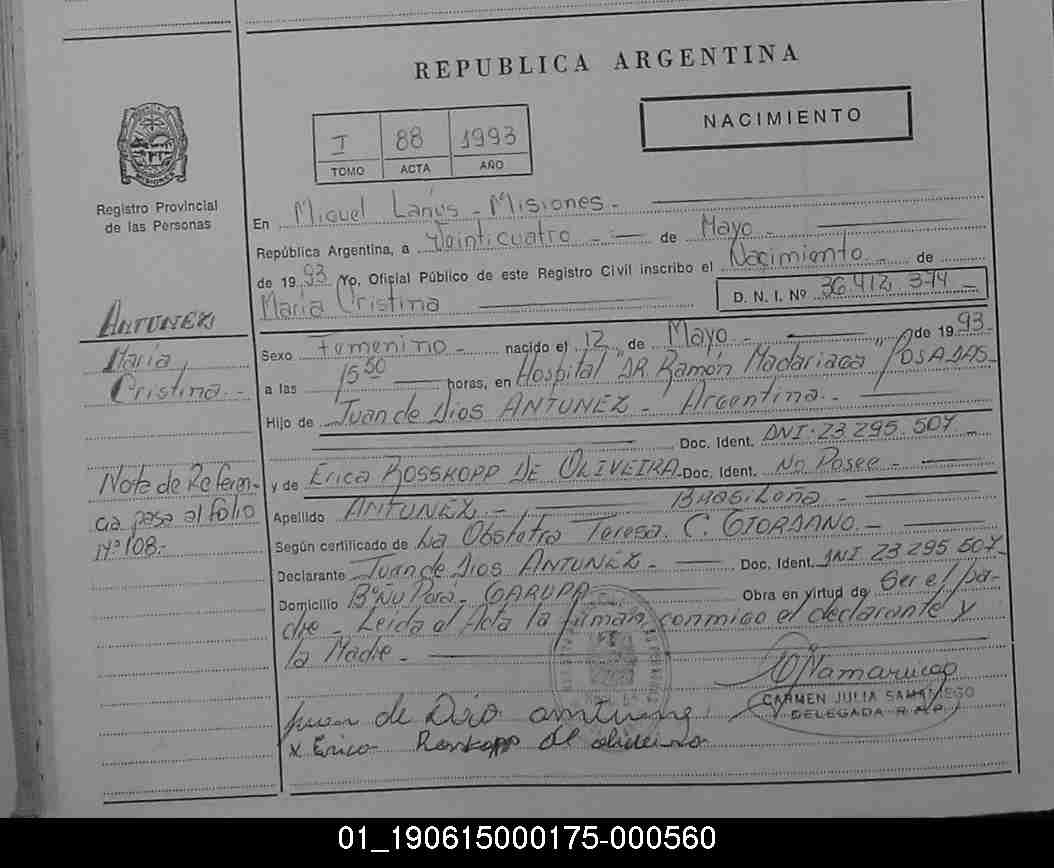 REPUBLICA ARGENTINA
NACIMIENTO
I 88 1993
TOMO ACTA AÑO
Registro Provincial
de las Personas
En Miguel Lanús - Misiones -
República Argentina, a Veinticuatro - de Mayo
de 1993 Yo, Oficial Público de este Registro Civil inscribo el Nacimiento de
María Cristina
D. N. I. Nº 36.412.374 -
ANTUNEZ
María
Cristina. -
Sexo Femenino - nacido el 12 de Mayo - de 1993 -
a las 15 50 horas, en Hospital DR. Ramón Madariaga POSADAS -
Hijo de Juan de Dios ANTUNEZ - Argentina. -
Doc. Ident. DNI. 23 295.507 -
Nota de Referen-
cia pasa al folio
Nº 108.-
y de Erica ROSSKOPP DE OLIVEIRA - Doc. Ident. No Posee -
Apellido ANTUNEZ - Brasileña. -
Según certificado de La Obstetra Teresa. C. GIORDANO. -
Declarante Juan de Dios ANTUNEZ - Doc. Ident. DNI 23 295 507
Domicilio Bº Ñu Pora - GARUPA Obra en virtud de Ser el pa-
dre - Leída el Acta la firman conmigo el declarante y
la Madre. -
CARMEN JULIA SAMANIEGO
DELEGADA R.P.P.
Juan de Dio antunez
x Erica Rosskopp de oliveira
01_190615000175-000560